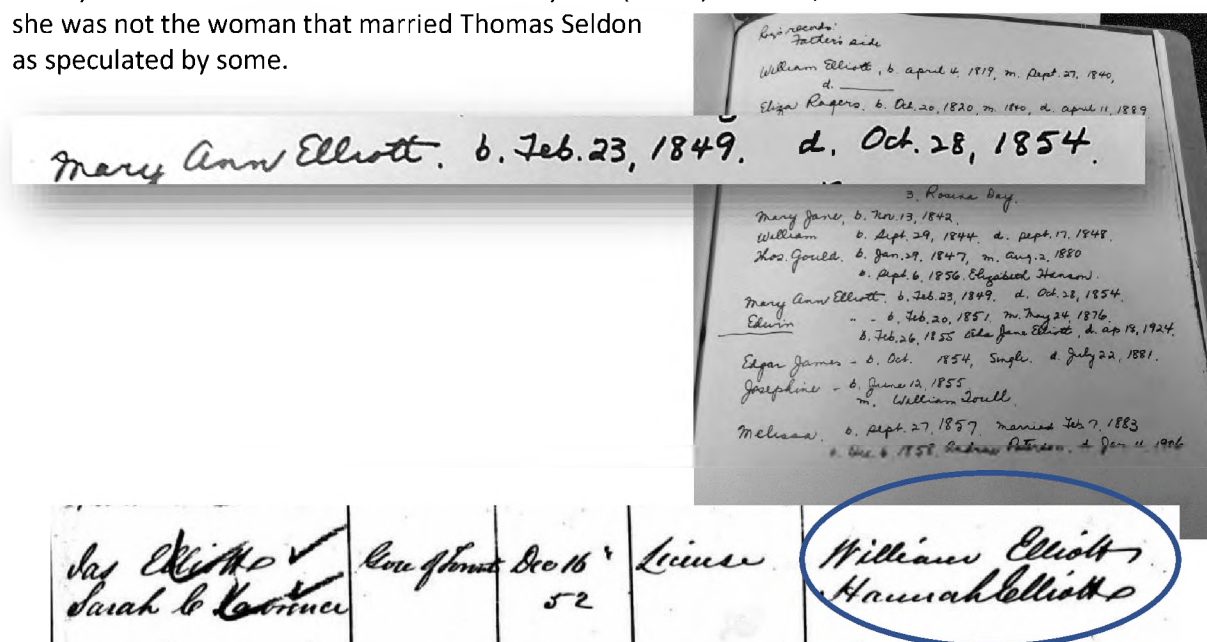 she was not the woman that married Thomas Seldon
as speculated by some.
Roy's records:
Father's side
William Elliott, b. April 4, 1819, m. Sept. 27, 1840,
d.
Eliza Rogers, b. Oct. 20, 1820, m. 1840, d. April 11, 1889
Mary Ann Elliott. b. Feb. 23, 1849. d. Oct. 28, 1854.
3. Rosena Day.
Mary Jane, b. Nov. 13, 1842.
William b. Sept. 29, 1844 d. Sept. 17, 1848.
Thos. Gould. b. Jan. 29, 1847, m. Aug. 2, 1880
b. Sept. 6, 1856 Elizabeth Hanson.
Mary Ann Elliott. b. Feb. 23, 1849. d. Oct. 28, 1854.
Edwin " - b. Feb. 20, 1851. m. May 24, 1876.
b. Feb. 26, 1855 Jane Elliott, d. Ap 18, 1924.
Edgar James - b. Oct. 1854, Single. d. July 22, 1881.
Josephine - b. June 12, 1855
m. William Toull
Melissa. b. Sept. 27, 1857. married Feb 7, 1883
b. Dec. 6, 1858. Andrew Paterson. d Jan 11 1906
Jas Elliott
Sarah C Lawrence
Dec 16
52
License
William Elliott
Hannah Elliott